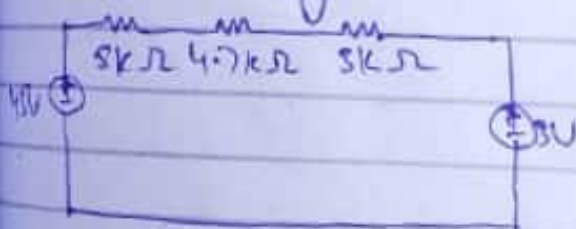 5kΩ 4.7kΩ 3kΩ
45V
3V